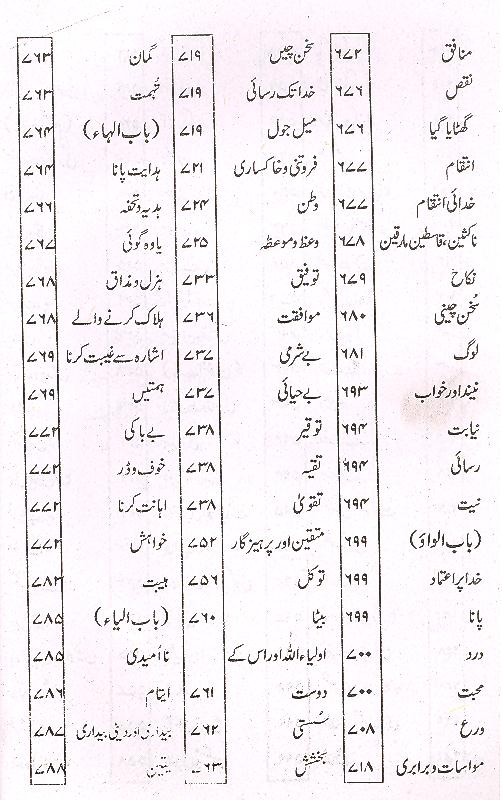 منافق ۶۷۲
نقص ۶۷۶
گھٹایا گیا ۶۷۶
انتقام ۶۷۷
خدائی انتقام ۶۷۷
ناکثین، قاسطین مارقین ۶۷۸
نکاح ۶۷۹
سُخن چینی ۶۸۰
لوگ ۶۸۱
نیند اور خواب ۶۹۳
نیابت ۶۹۴
رسائی ۶۹۴
نیت ۶۹۴
(باب الواؤ) ۶۹۹
خدا پر اعتماد ۶۹۹
پانا ۶۹۹
درد ۷۰۰
محبت ۷۰۰
ورع ۷۰۸
مواسات و برابری ۷۱۸
سخن چیں ۷۱۹
خدا تک رسائی ۷۱۹
میل جول ۷۱۹
فروتنی و خاکساری ۷۲۱
وطن ۷۲۴
وعظ و موعظہ ۷۲۵
توفیق ۷۳۳
موافقت ۷۳۶
بے شرمی ۷۳۷
بے حیائی ۷۳۷
توقیر ۷۳۸
تقیہ ۷۳۸
تقویٰ ۷۳۸
متقین اور پرہیزگار ۷۵۲
توکل ۷۵۶
بیٹا ۷۶۰
اولیاء اللہ اور اس کے
دوست ۷۶۱
سُستی ۷۶۲
بخشش ۷۶۳
گمان ۷۶۳
تُہمت ۷۶۳
(باب الہاء) ۷۶۴
ہدایت پانا ۷۶۴
ہدیہ و تحفہ ۷۶۶
یاوہ گوئی ۷۶۷
ہزل و مذاق ۷۶۸
ہلاک کرنے والے ۷۶۸
اشارہ سے غیبت کرنا ۷۶۹
ہمتیں ۷۶۹
بے باکی ۷۷۲
خوف و ڈر ۷۷۲
اہانت کرنا ۷۷۲
خواہش ۷۷۲
ہیبت ۷۸۲
(باب الیاء) ۷۸۵
نا اُمیدی ۷۸۵
ایتام ۷۸۶
بیداری اور دینی بیداری ۷۸۷
یقین ۷۸۸